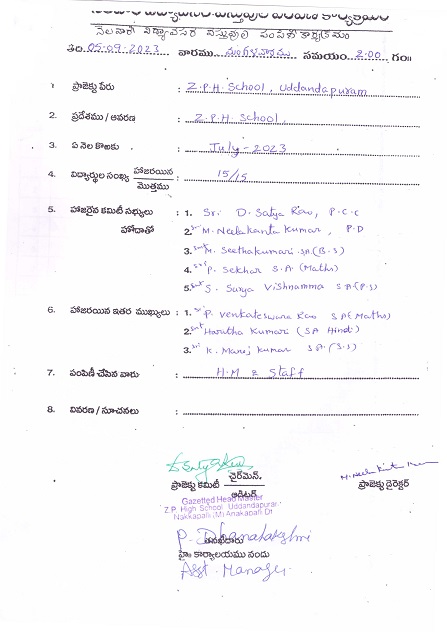 నెలవారీ విద్యావసర వస్తువుల పంపిణీ కార్యక్రమం
తేది.05.09.2023 వారము మంగళవారము సమయం..2:00 గం॥
1 ప్రాజెక్టు పేరు : Z.P.H School, Uddandapuram
2. ప్రదేశము / ఆవరణ : Z.P.H. School,
3. ఏ నెల కొఱకు : July-2023
4. విద్యార్థుల సంఖ్య హాజరయిన / మొత్తము : 15/15
5. హాజరైన కమిటీ సభ్యులు : 1. Sri. D. Satya Rao, P.C.C
హోదాతో 2. Sri M. Neelakanta Kumar, P.D
3. Smt M. Seethakumari .SA.(B.S)
4. P. Sekhar S.A (Maths)
5. Smt S. Surya Vishnamma S.A(P.S)
6. హాజరయిన ఇతర ముఖ్యులు : 1. Sri P. Venkateswara Rao SA(Maths)
2. Smt Haritha Kumari (SA Hindi)
3. Sri K. Manoj Kumar SA.(S.S)
7. పంపిణీ చేసిన వారు : H.M & Staff
8. వివరణ / సూచనలు :
ప్రాజెక్టు కమిటీ ఛైర్మెన్, / ఆడిటర్
ప్రాజెక్టు డైరెక్టర్
Gazetted Head Master
Z.P. High School Uddandapuram
Nakkapalli (M) Anakapalli Dt
P. Dhanalakshmi
తనిఖీదారు
హై కార్యాలయము నందు
Asst. Manager.